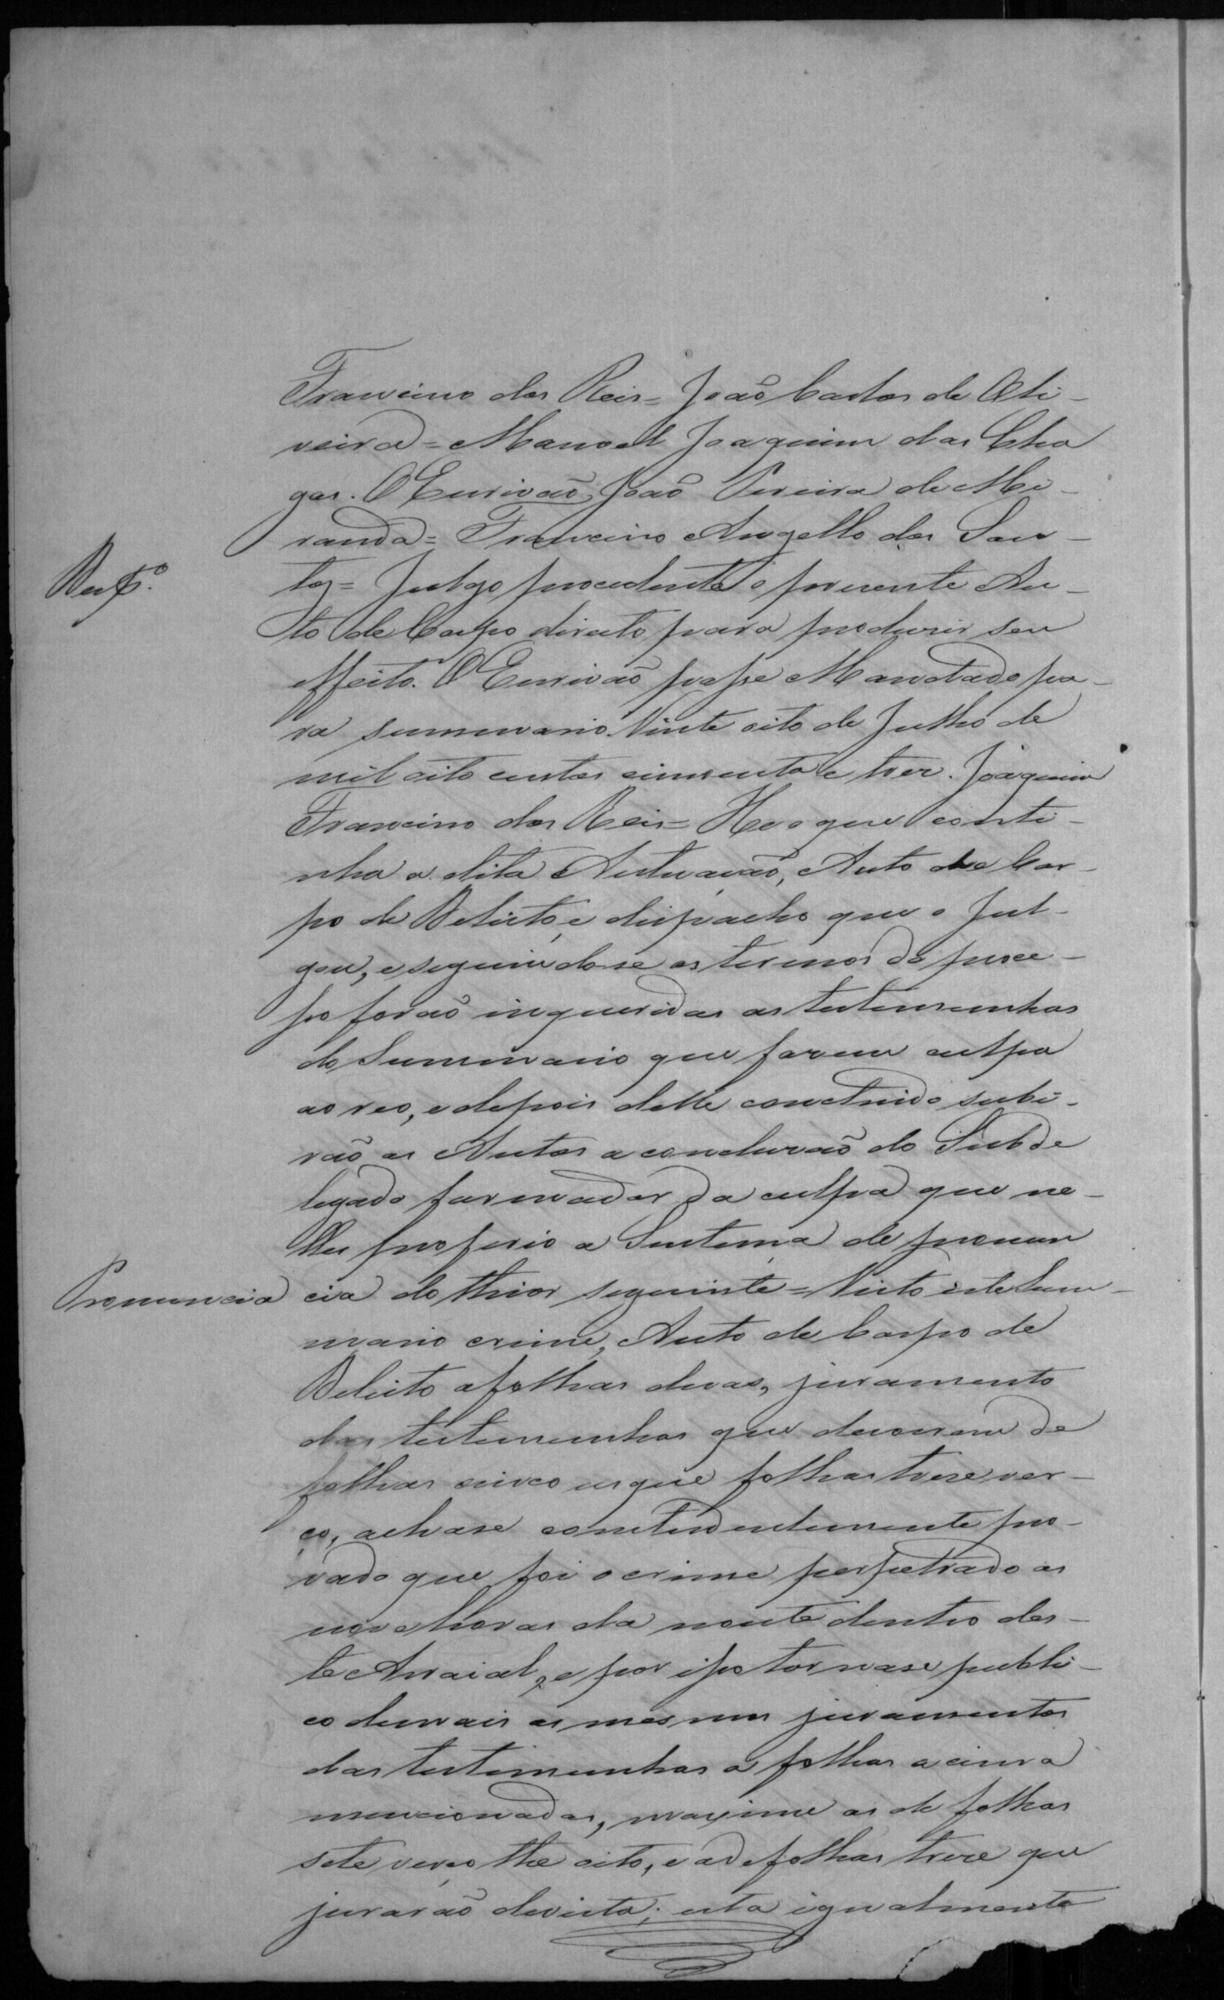 Francisco dos Reis = João Carlos de Oli-
veira = Manoel Joaquim das Cha
gas. O Escrivão João Pereira de Mi-
randa = Francisco Angello dos San-
Desp.º
tos = Julgo procedente o presente Au-
to de Corpo directo para produzir seu
effeito. O Escrivão passe Mandado pa-
ra summario. Vinte oito de Julho de
mil oito centos cincoenta e tres. Joaquim
Francisco dos Reis = He o que conti-
nha a dita Autuação, Auto de Cor-
po de Delicto, e despacho que o jul-
gou, e seguindo-se os termos do proce-
sso forão inqueridas as testemunhas
do Summario que fazem culpa
ao reo, e depois delle concluido subi-
rão os Autos a concluzão do Subde
legado formador da culpa que ne-
lles proferio a Sentença de pronun
Pronuncia
cia do theor seguinte = Visto este Sum-
mario crime, Auto de Corpo de
Delicto a folhas duas, juramento
das testemunhas que decorrem de
folhas cinco usque folhas treze ver-
ço, achase contundentemente pro-
vado que foi o crime perpetrado as
nove horas da noute dentro des-
te Arraial, e por isso tornase publi-
co demais os mesmos juramentos
das testemunhas a folhas acima
mencionadas, maxime as de folhas
sete verço the oito, e as de folhas treze que
jurarão devista; esta igualmente